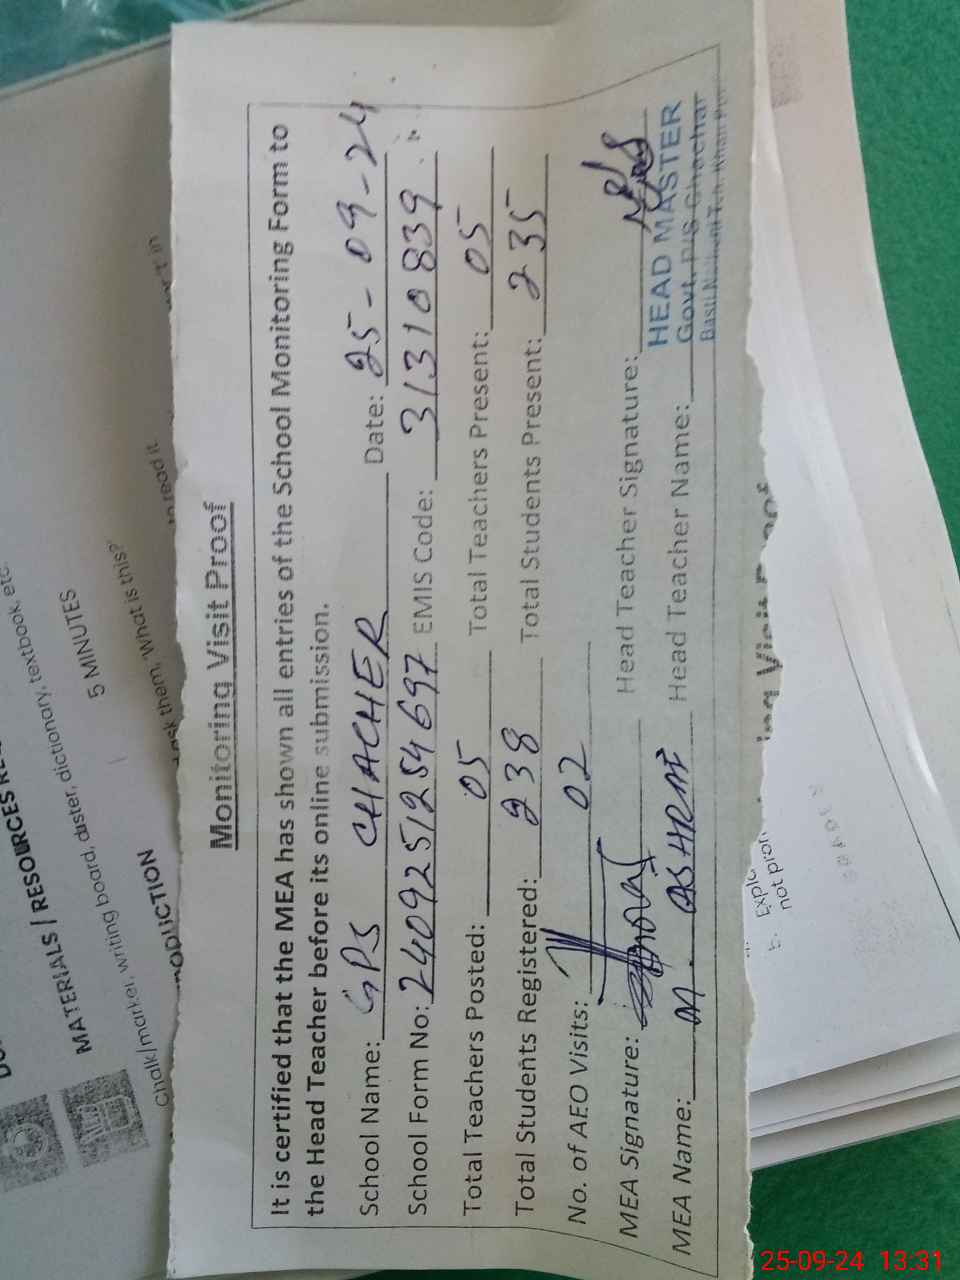 Monitoring Visit Proof
It is certified that the MEA has shown all entries of the School Monitoring Form to
the Head Teacher before its online submission.
School Name: GPS CHACHER Date: 25-09-24
School Form No: 2409251254697 EMIS Code: 31310839
Total Teachers Posted: 05 Total Teachers Present: 05
Total Students Registered: 238 Total Students Present: 235
No. of AEO Visits: 02
MEA Signature: Head Teacher Signature:
MEA Name: M. ASHRAF Head Teacher Name:
HEAD MASTER
Govt. P/S Chachar
Basti
MATERIALS / RESOURCES
Chalk/marker, writing board, duster, dictionary, textbook, etc.
5 MINUTES
ask them, "What is this?"
read it
Explo
not pron
25-09-24 13:31